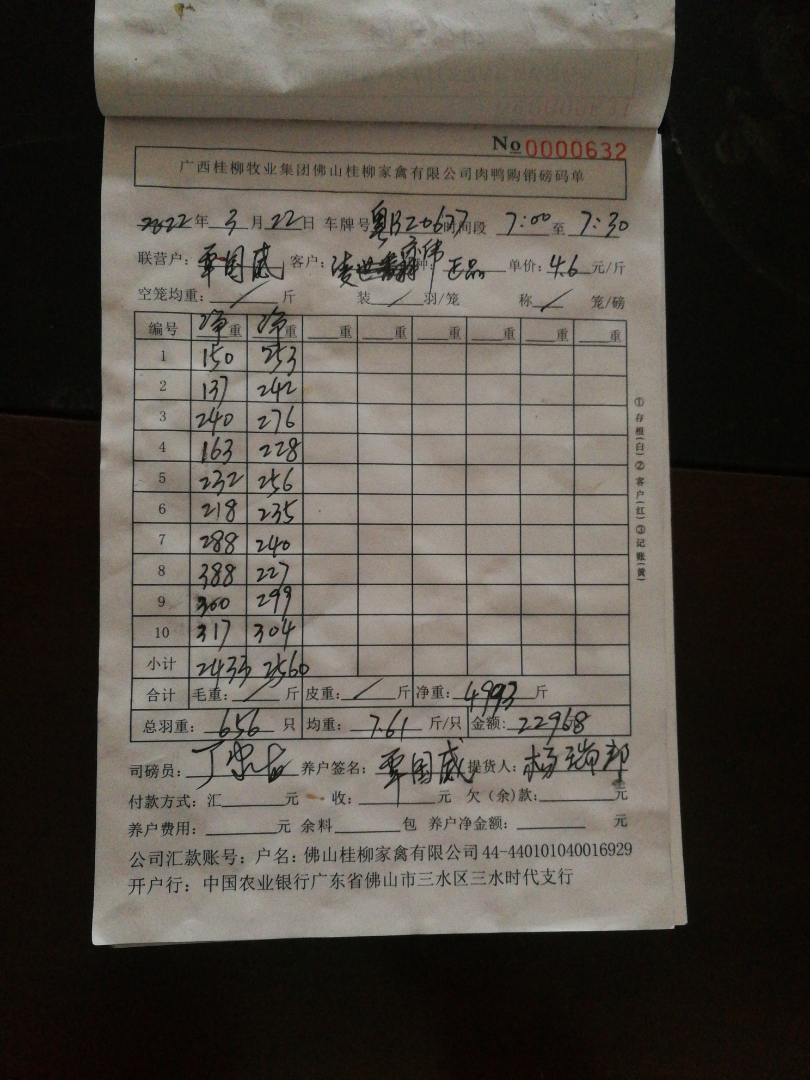 No 0000632
广西桂柳牧业集团佛山桂柳家禽有限公司肉鸭购销磅码单
2022年 3月 22日 车牌号 粤B20677 时间段 7:00 至 7:30
联营户: 覃国威 客户: 凌世 种: 正品 单价: 4.6 元/斤
空笼均重: / 斤 装 / 羽/笼 称 / 笼/磅
编号 净重 净重 重 重 重 重 重 重
1 150 253
2 137 242
3 240 276
4 163 228
5 232 256
6 218 235
7 288 240
8 388 227
9 300 299
10 317 304
小计 2433 2560
合计 毛重: / 斤 皮重: / 斤 净重: 4993 斤
总羽重: 656 只 均重: 7.61 斤/只 金额: 22968
司磅员: 养户签名: 覃国威 提货人: 杨瑞邦
付款方式: 汇 元 收: 元 欠(余)款: 元
养户费用: 元 余料 包 养户净金额: 元
公司汇款账号: 户名: 佛山桂柳家禽有限公司 44-440101040016929
开户行: 中国农业银行广东省佛山市三水区三水时代支行
①存根(白)②客户(红)③记账(黄)